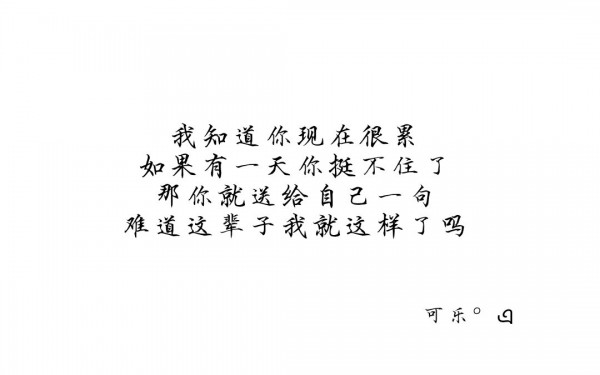 我知道你现在很累
如果有一天你挺不住了
那你就送给自己一句
难道这辈子我就这样了吗
可乐°